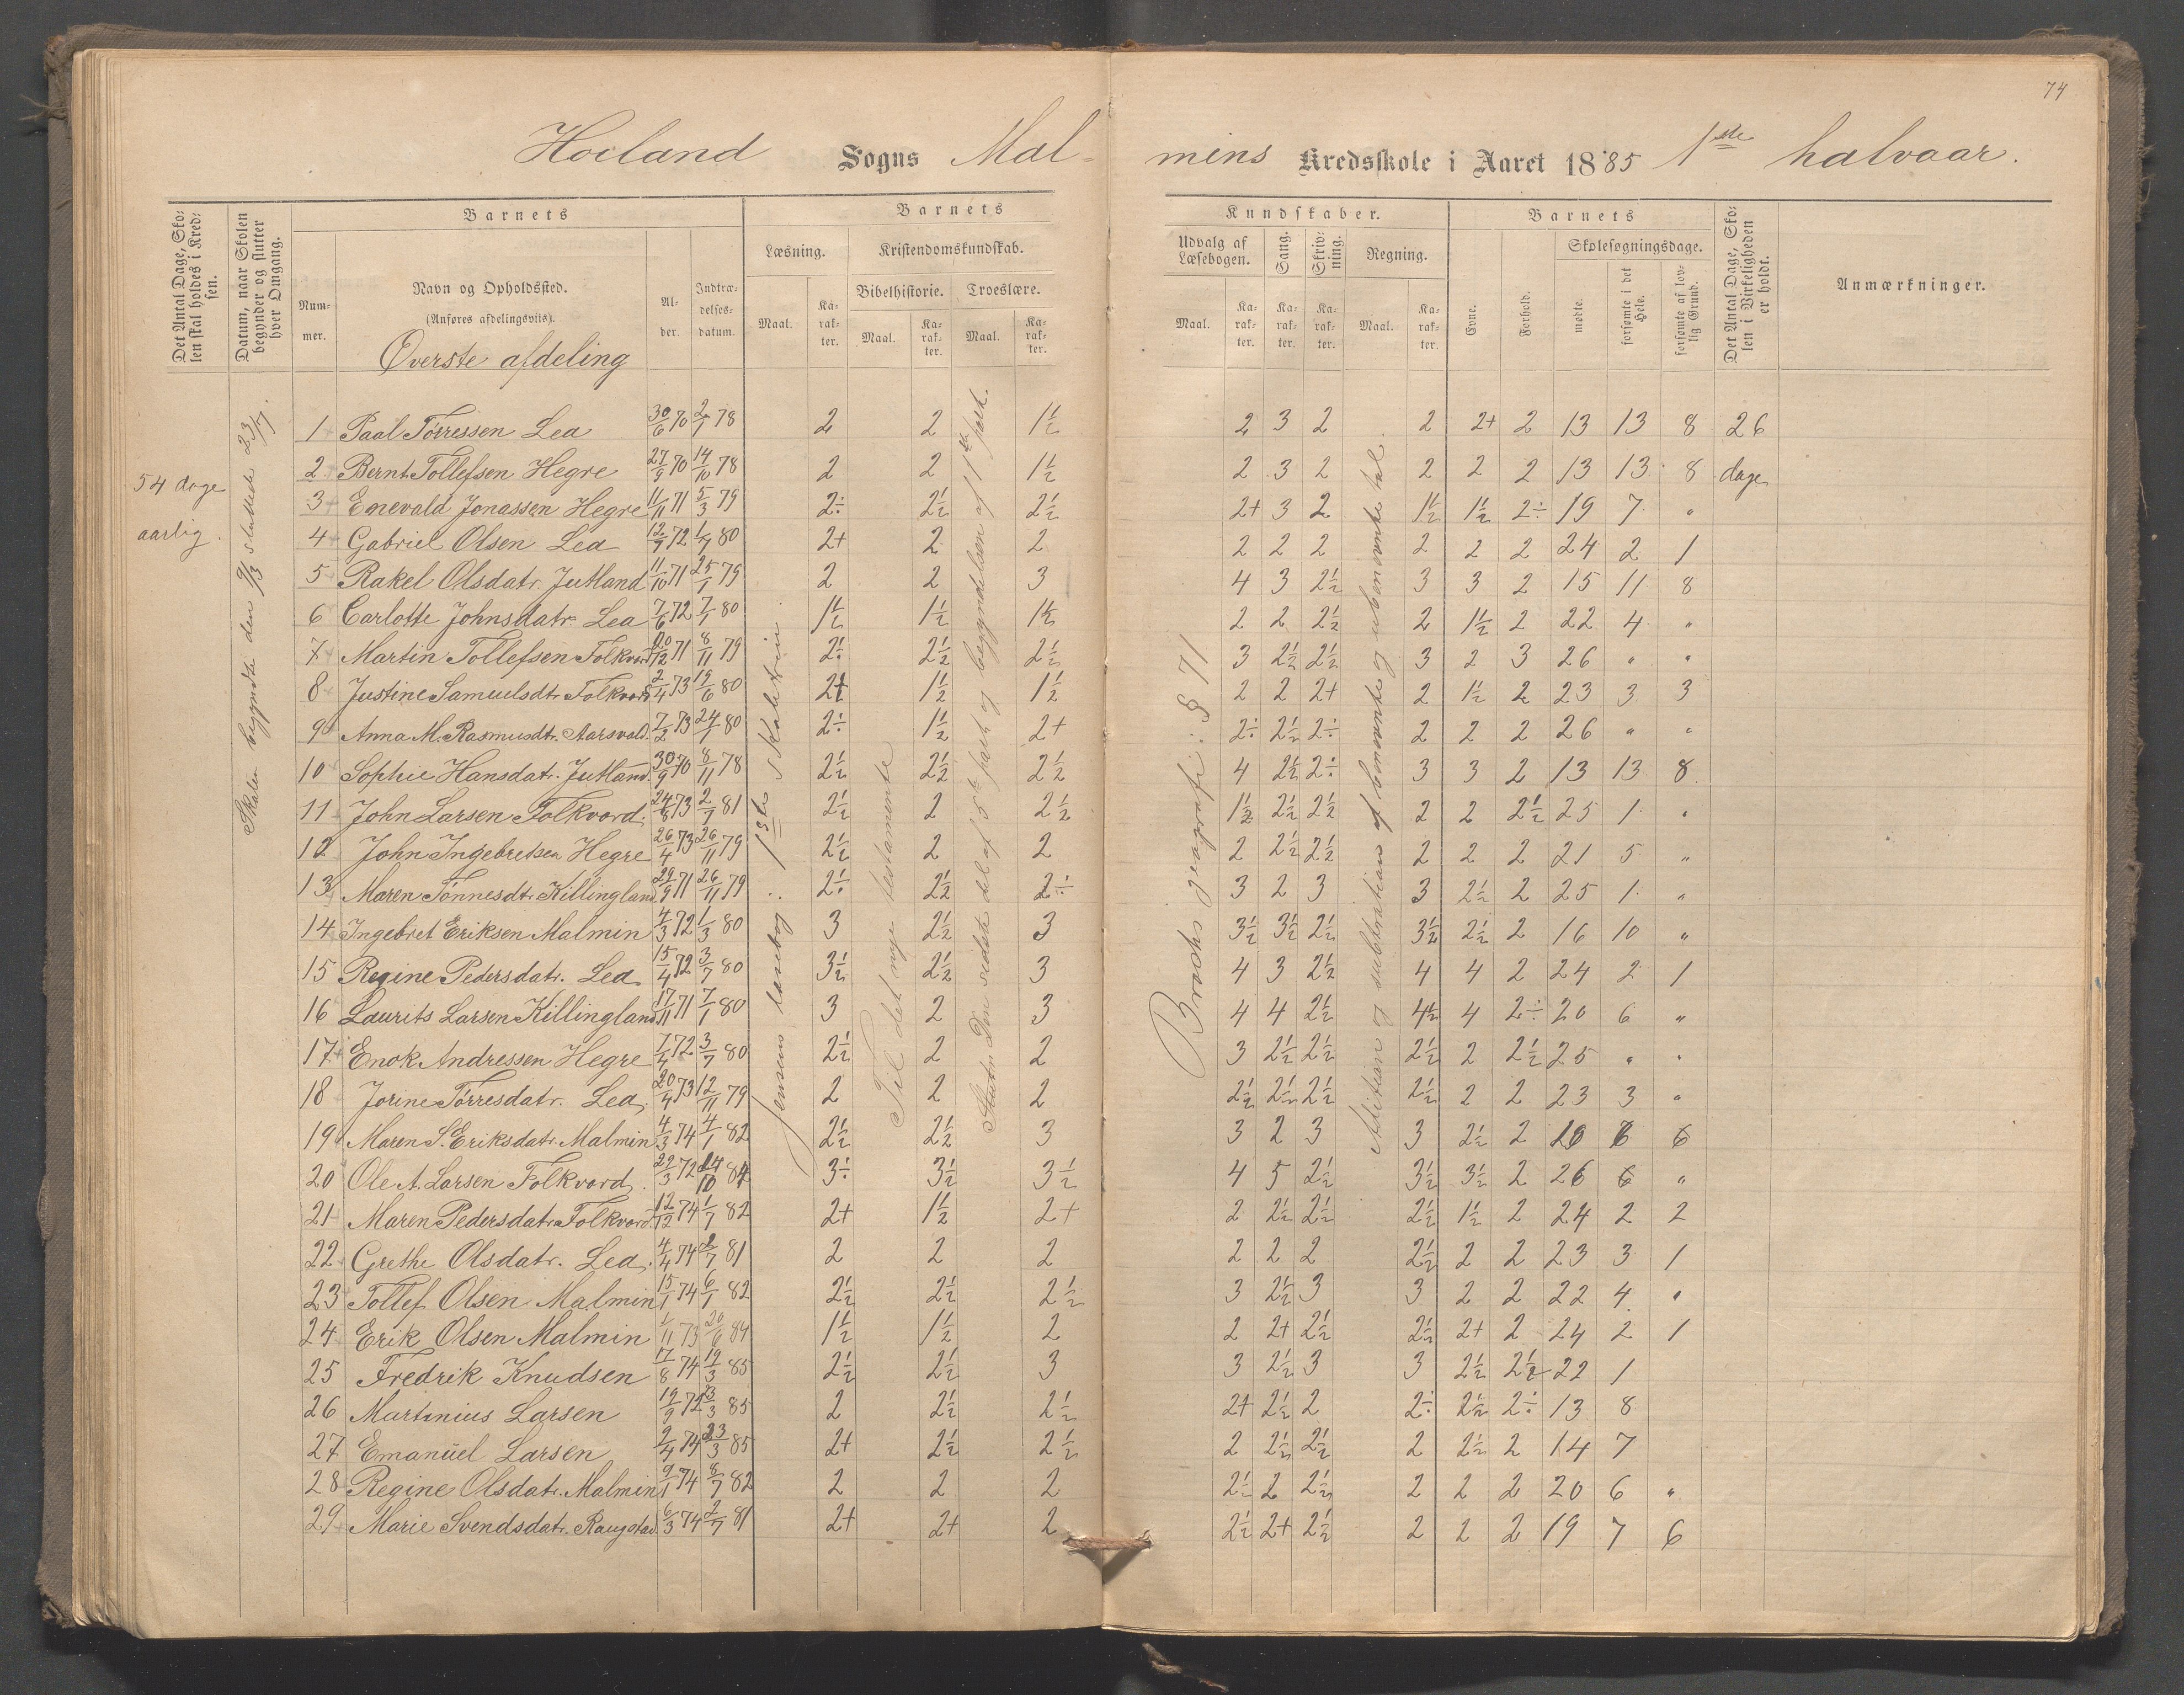 74
Høiland Sogns Mal- mins Kredsskole i Aaret 1885 1ste halvaar.
Det Antal Dage, Skolen skal holdes i Kredsen.
Datum, naar Skolen begynder og slutter hver Omgang.
Barnets
Nummer.
Navn og Opholdssted.
(Anføres afdelingsviis).
Alder.
Indtrædelsesdatum.
Barnets Kundskaber.
Læsning.
Kristendomskundskab.
Bibelhistorie.
Troeslære.
Udvalg af Læsebogen.
Sang.
Skrivning.
Regning.
Maal.
Karakter.
Barnets
Evne.
Forhold.
Skolesøgningsdage.
mødte.
forsømte i det Hele.
forsømte af lovlig Grund.
Det Antal Dage, Skolen i Virkeligheden er holdt.
Anmærkninger.
Øverste afdeling
54 dage
aarlig.
Skolen begyndte den 9/3 sluttede 23/7.
Jensens læsebog: 1ste skoletrin.
Til det nye testamente
Brochs geografi: § 71
Addition og subtraktion af benævnte og ubenævnte tal.
26
dage
1 Paal Tørressen Lea 30/6 70 2/1 78 2 2 1½ 2 3 2 2 2+ 2 13 13 8
2 Bernt Tollefsen Hegre 27/9 70 14/10 78 2 2 1½ 2 3 2 2 2 2 13 13 8
3 Enevald Jonassen Hegre 11/11 71 5/3 79 2÷ 2½ 2½ 2+ 3 2 1½ 1½ 2÷ 19 7 "
4 Gabriel Olsen Lea 12/7 72 1/7 80 2+ 2 2 2 2 2 2 2 2 24 2 1
5 Rakel Olsdatr. Jutland 11/10 71 25/1 79 2 2 3 4 3 2½ 3 3 2 15 11 8
6 Carlotte Johnsdatr. Lea 7/6 72 7/1 80 1½ 1½ 1½ 2 2 2½ 2 1½ 2 22 4 "
7 Martin Tollefsen Folkvord 20/12 71 8/11 79 2÷ 2½ 2½ 3 2½ 2½ 3 2 3 26 " "
8 Justine Samuelsdtr. Folkvord 2/4 73 19/6 80 2+ 1½ 1½ 2 2 2+ 2 1½ 2 23 3 3
9 Anna M. Rasmusdtr. Aarsvold 7/2 73 24/1 80 2÷ 1½ 2+ 2÷ 2½ 2÷ 2 2 2 26 " "
10 Sophie Hansdatr. Jutland. 30/9 70 8/11 78 2½ 2½ 2½ 4 2½ 2÷ 3 3 2 13 13 8
11 John Larsen Folkvord 24/8 73 2/7 81 2½ 2 2½ 1½ 2½ 2½ 2 2 2½ 25 1 "
12 John Ingebretsen Hegre 26/4 73 26/11 79 2½ 2 2 2 2½ 2½ 2 2 2 21 5 "
13 Maren Tønnesdtr. Killingland 29/9 71 26/11 79 2÷ 2½ 2÷ 3 2 3 3 2½ 2 25 1 "
14 Ingebret Eriksen Malmin 4/3 72 1/3 80 3 2½ 3 3½ 3½ 2½ 3½ 2½ 2 16 10 "
15 Regine Pedersdatr. Lea 15/4 72 3/7 80 3½ 2½ 3 4 3 2½ 4 4 2 24 2 1
16 Laurits Larsen Killingland 17/11 71 7/1 80 3 2 3 4 4 2½ 4½ 4 2÷ 20 6 "
17 Enok Andressen Hegre 7/4 72 3/7 80 2½ 2 2 3 2½ 2½ 2½ 2 2½ 25 " "
18 Jorine Tørresdatr. Lea 20/4 73 12/11 79 2 2 2 2½ 2½ 2½ 2½ 2 2 23 3 "
19 Maren S. Eriksdatr. Malmin 4/3 74 4/1 82 2½ 2½ 3 3 2 3 3 2½ 2 6
20 Ole A. Larsen Folkvord 22/3 72 14/10 84 3÷ 3½ 3½ 4 5 2½ 3½ 3½ 2 26 "
21 Maren Pedersdatr. Folkvord 12/12 74 1/7 82 2+ 1½ 2+ 2 2½ 2½ 2½ 1½ 2 24 2 2
22 Grethe Olsdatr. Lea 4/4 74 2/7 81 2 2 2 2 2 2 2½ 2 2 23 3 1
23 Tollef Olsen Malmin 15/1 74 6/1 82 2½ 2½ 2½ 3 2½ 3 3 2 2 22 4 "
24 Erik Olsen Malmin 1/11 73 20/6 84 1½ 1½ 2 2 2+ 2½ 2½ 2+ 2 24 2 1
25 Fredrik Knudsen 17/8 74 19/3 85 2½ 2½ 3 3 2½ 3 3 2½ 2½ 22 1
26 Martinius Larsen 19/9 72 23/3 85 2 2½ 2½ 2+ 2½ 2 2÷ 2½ 2÷ 13 8
27 Emanuel Larsen 9/4 74 23/3 85 2+ 2½ 2½ 2 2½ 2½ 2 2½ 2 14 7
28 Regine Olsdatr. Malmin 9/1 74 8/7 82 2 2 2 2½ 2 2½ 2 2 2 20 6 "
29 Marie Svendsdatr. Raugstad 6/3 74 2/7 81 2+ 2+ 2 2½ 2+ 2½ 2 2 2 19 7 6